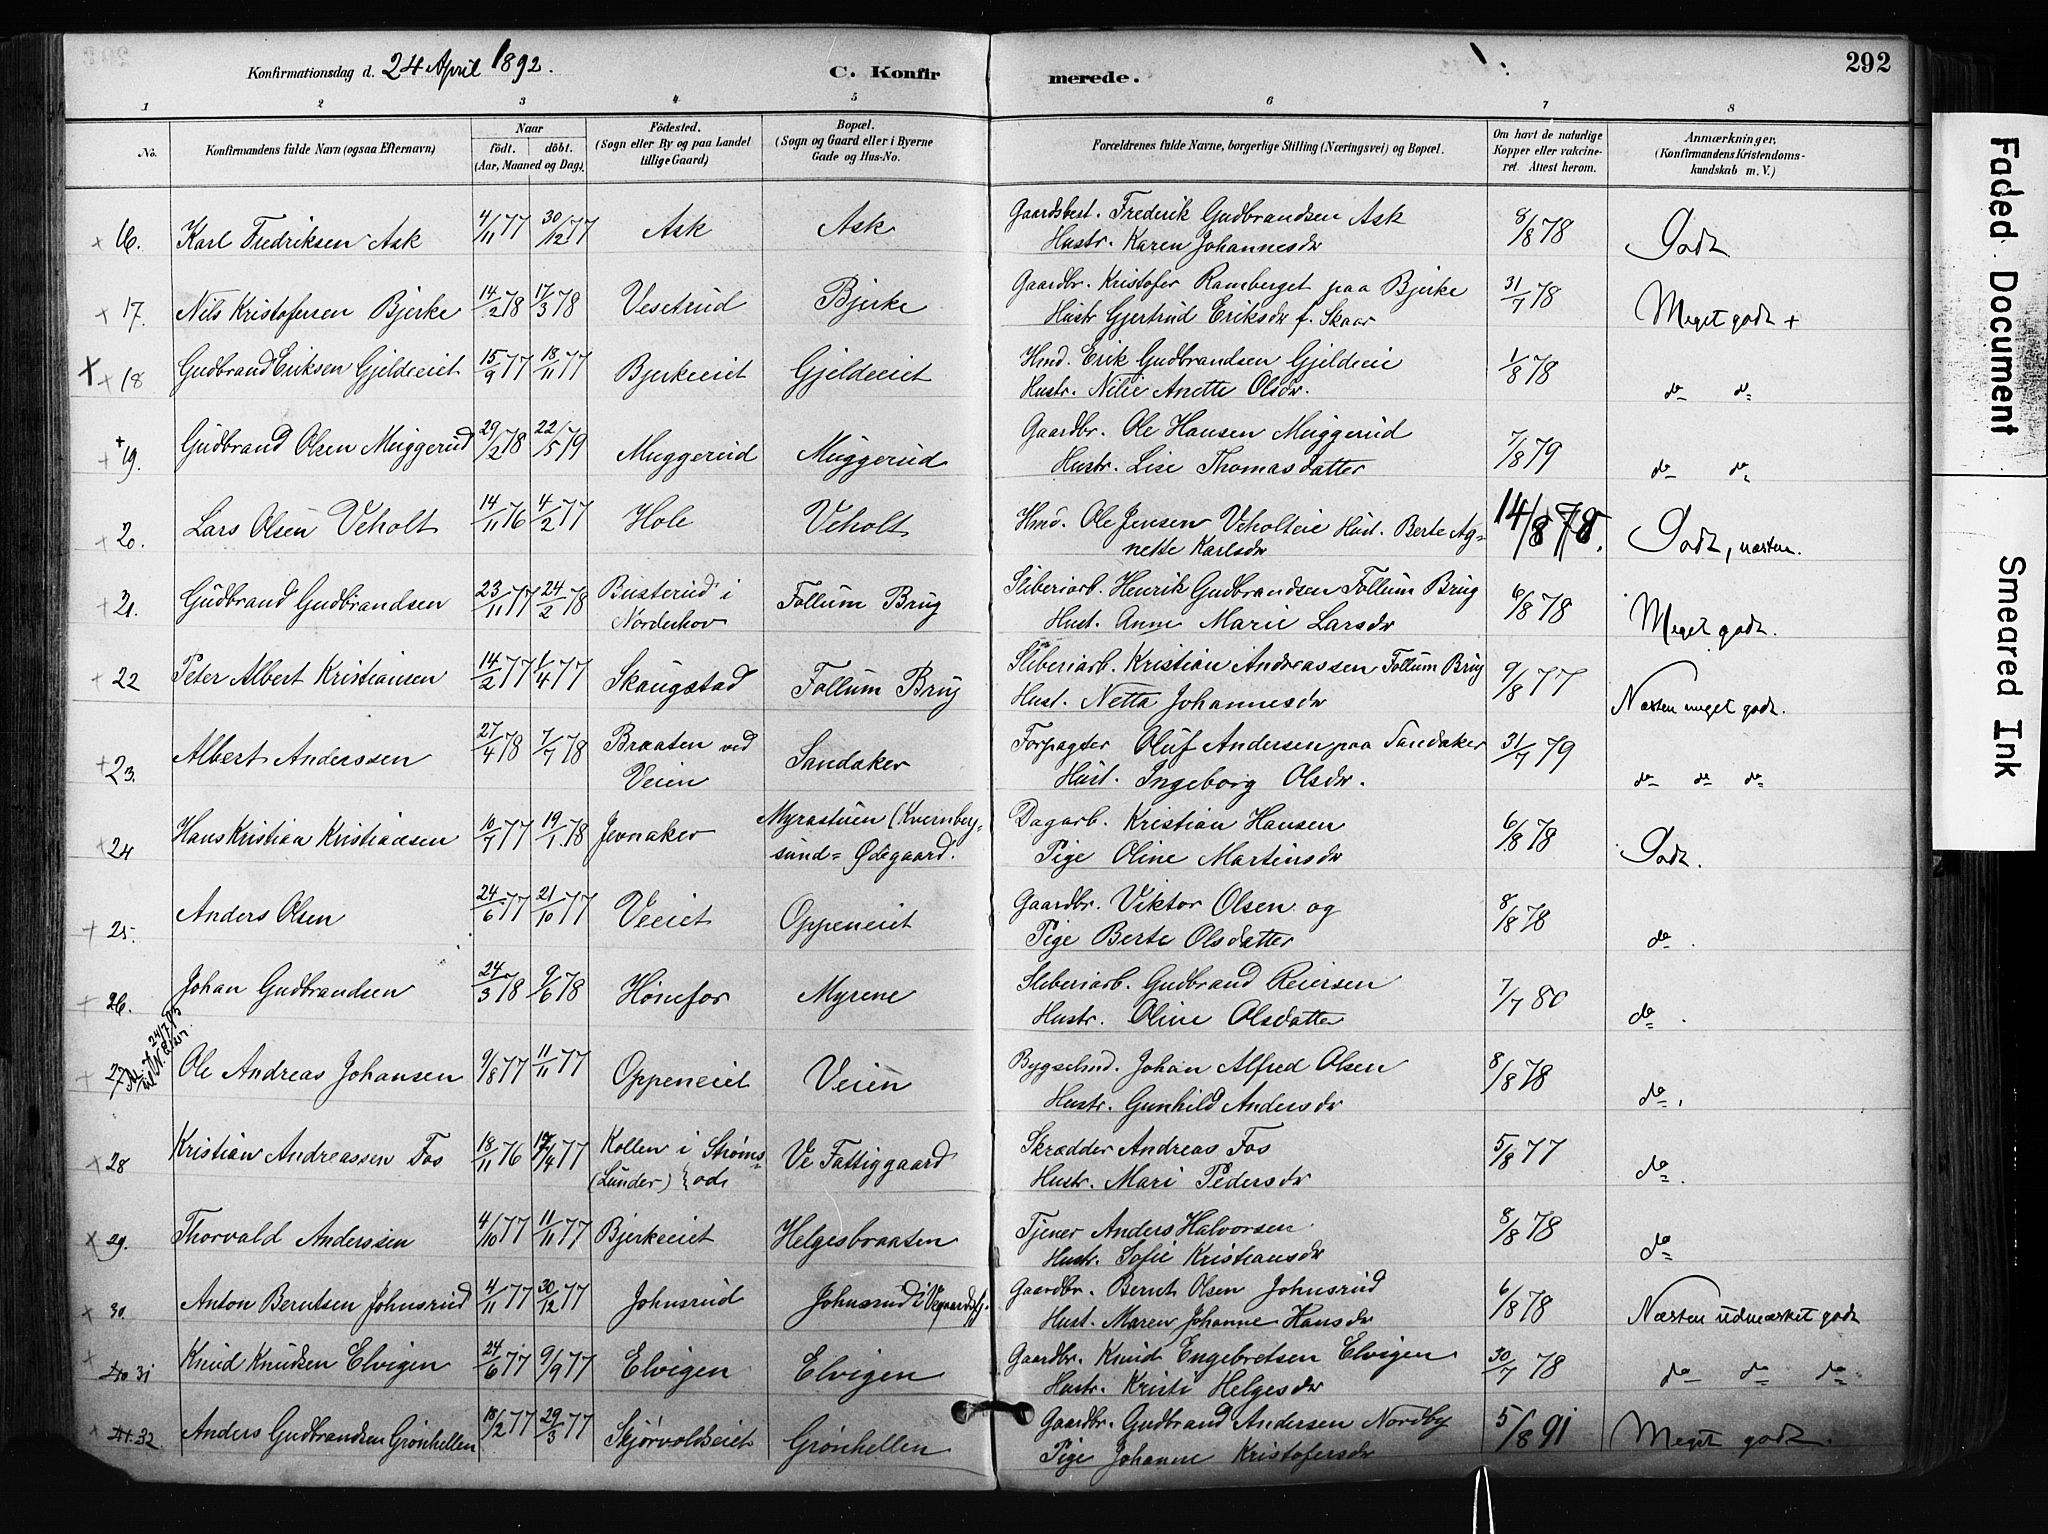 Konfirmationsdag d. 24 April 1892.
C. Konfirmerede.
292
1 2 3 4 5 6 7 8
No.
Konfirmandens fulde Navn (ogsaa Efternavn)
Naar
födt. döbt.
(Aar, Maaned og Dag).
Födested.
(Sogn eller By og paa Landet
tillige Gaard)
Bopæl.
(Sogn og Gaard eller i Byerne
Gade og Hus-No.
Forældrenes fulde Navne, borgerlige Stilling (Næringsvei) og Bopæl.
Om havt de naturlige
Kopper eller vakcine-
ret. Attest herom.
Anmærkninger,
(Konfirmandens Kristendoms-
kundskab m. V.)
16. Karl Fredriksen Ask 4/11 77 30/12 77 Ask Ask Gaardsbest. Frederik Gudbrandsen Ask 8/8 78 Godt
Hustr. Karen Johannesdr
17. Nils Kristofersen Bjerke 14/2 78 17/3 78 Vesetrud Bjerke Gaardbr. Kristofer Ramberget paa Bjerke 31/7 78 Meget godt +
Hustr Gjertrud Eriksdr f. Skaar
18 Gudbrand Eriksen Gjeldeeiet 15/9 77 18/11 77 Bjerkeeiet Gjeldeeiet Hmd. Erik Gudbrandsen Gjeldeie 1/8 78 do do
Hustr. Nilie Anette Olsdr.
19. Gudbrand Olsen Muggerud 29/2 78 22/5 79 Muggerud Muggerud Gaardbr. Ole Hansen Muggerud 7/8 79 do do
Hustr. Lise Thomasdatter
20. Lars Olsen Veholt 14/11 76 4/2 77 Hole Veholt Hmd. Ole Jensen Veholteie Hust. Berte Ag= 14/8 78. Godt, næsten.
nette Karlsdr
21. Gudbrand Gudbrandsen 23/11 77 24/2 78 Busterud i Follum Brug Sliberiarb. Henrik Gudbrandsen Follum Brug 6/8 78 Meget godt.
Norderhov Hust. Anne Marie Larsdr
22 Peter Albert Kristiansen 14/2 77 1/4 77 Skaugstad Follum Brug Sliberiarb. Kristian Andreassen Follum Brug 9/8 77 Næsten meget godt.
Hust. Netta Johannesdr
23. Albert Anderssen 27/4 78 7/7 78 Braaten ved Sandaker Forpagter Oluf Andersen paa Sandaker 31/7 79 do do do
Veien Hust. Ingeborg Olsdr.
24 Hans Kristian Kristiansen 10/7 77 19/1 78 Jevnaker Myrastuen (Kvernberg- Dagarb. Kristian Hansen 6/8 78 Godt.
sund= Ødegaard. Pige Oline Martinsdr
25. Anders Olsen 24/6 77 21/10 77 Veeiet Oppeneiet Gaardbr. Viktor Olsen og 8/8 78 do.
Pige Berte Olsdatter
26. Johan Gudbrandsen 24/3 78 9/6 78 Hönefos Myrene Sliberiarb. Gudbrand Reiersen 7/7 80 do.
Hustr. Oline Olsdatter
27 Ole Andreas Johansen 9/8 77 11/11 77 Oppeneiet Veien Bygselmd. Johan Alfred Olsen 8/8 78 do.
Hustr. Gunhild Andersdr
28 Kristian Andreassen Fos 18/11 76 17/4 77 Kollen i Strøms= Ve Fattiggaard Skrædder Andreas Fos 5/8 77 do.
(Lunder) od. Hustr. Mari Pedersdr
29. Thorvald Anderssen 4/10 77 11/11 77 Bjerkeeiet Helgesbraaten Tjener Anders Halvorsen 8/8 78 do
Hustr. Sofie Kristiansdr
30. Anton Berntsen Johnsrud 4/11 77 30/12 77 Johnsrud Johnsrud i Gaardbr. Bernt Olsen Johnsrud 6/8 78 Næsten udmærket godt
Hust. Maren Johanne Hansdr
31 Knud Knudsen Elvigen 24/6 77 9/9 77 Elvigen Elvigen Gaardbr. Knud Engebretsen Elvigen 30/7 78 do do do
Hustr. Kristi Helgesdr
32. Anders Gudbrandsen Grönhellen 18/2 77 29/3 77 Skjörvoldseiet Grönhellen Gaardbr. Gudbrand Andersen Nordby 5/8 91 Meget godt.
Pige Johanne Kristofersdr
Faded Document
Smeared Ink